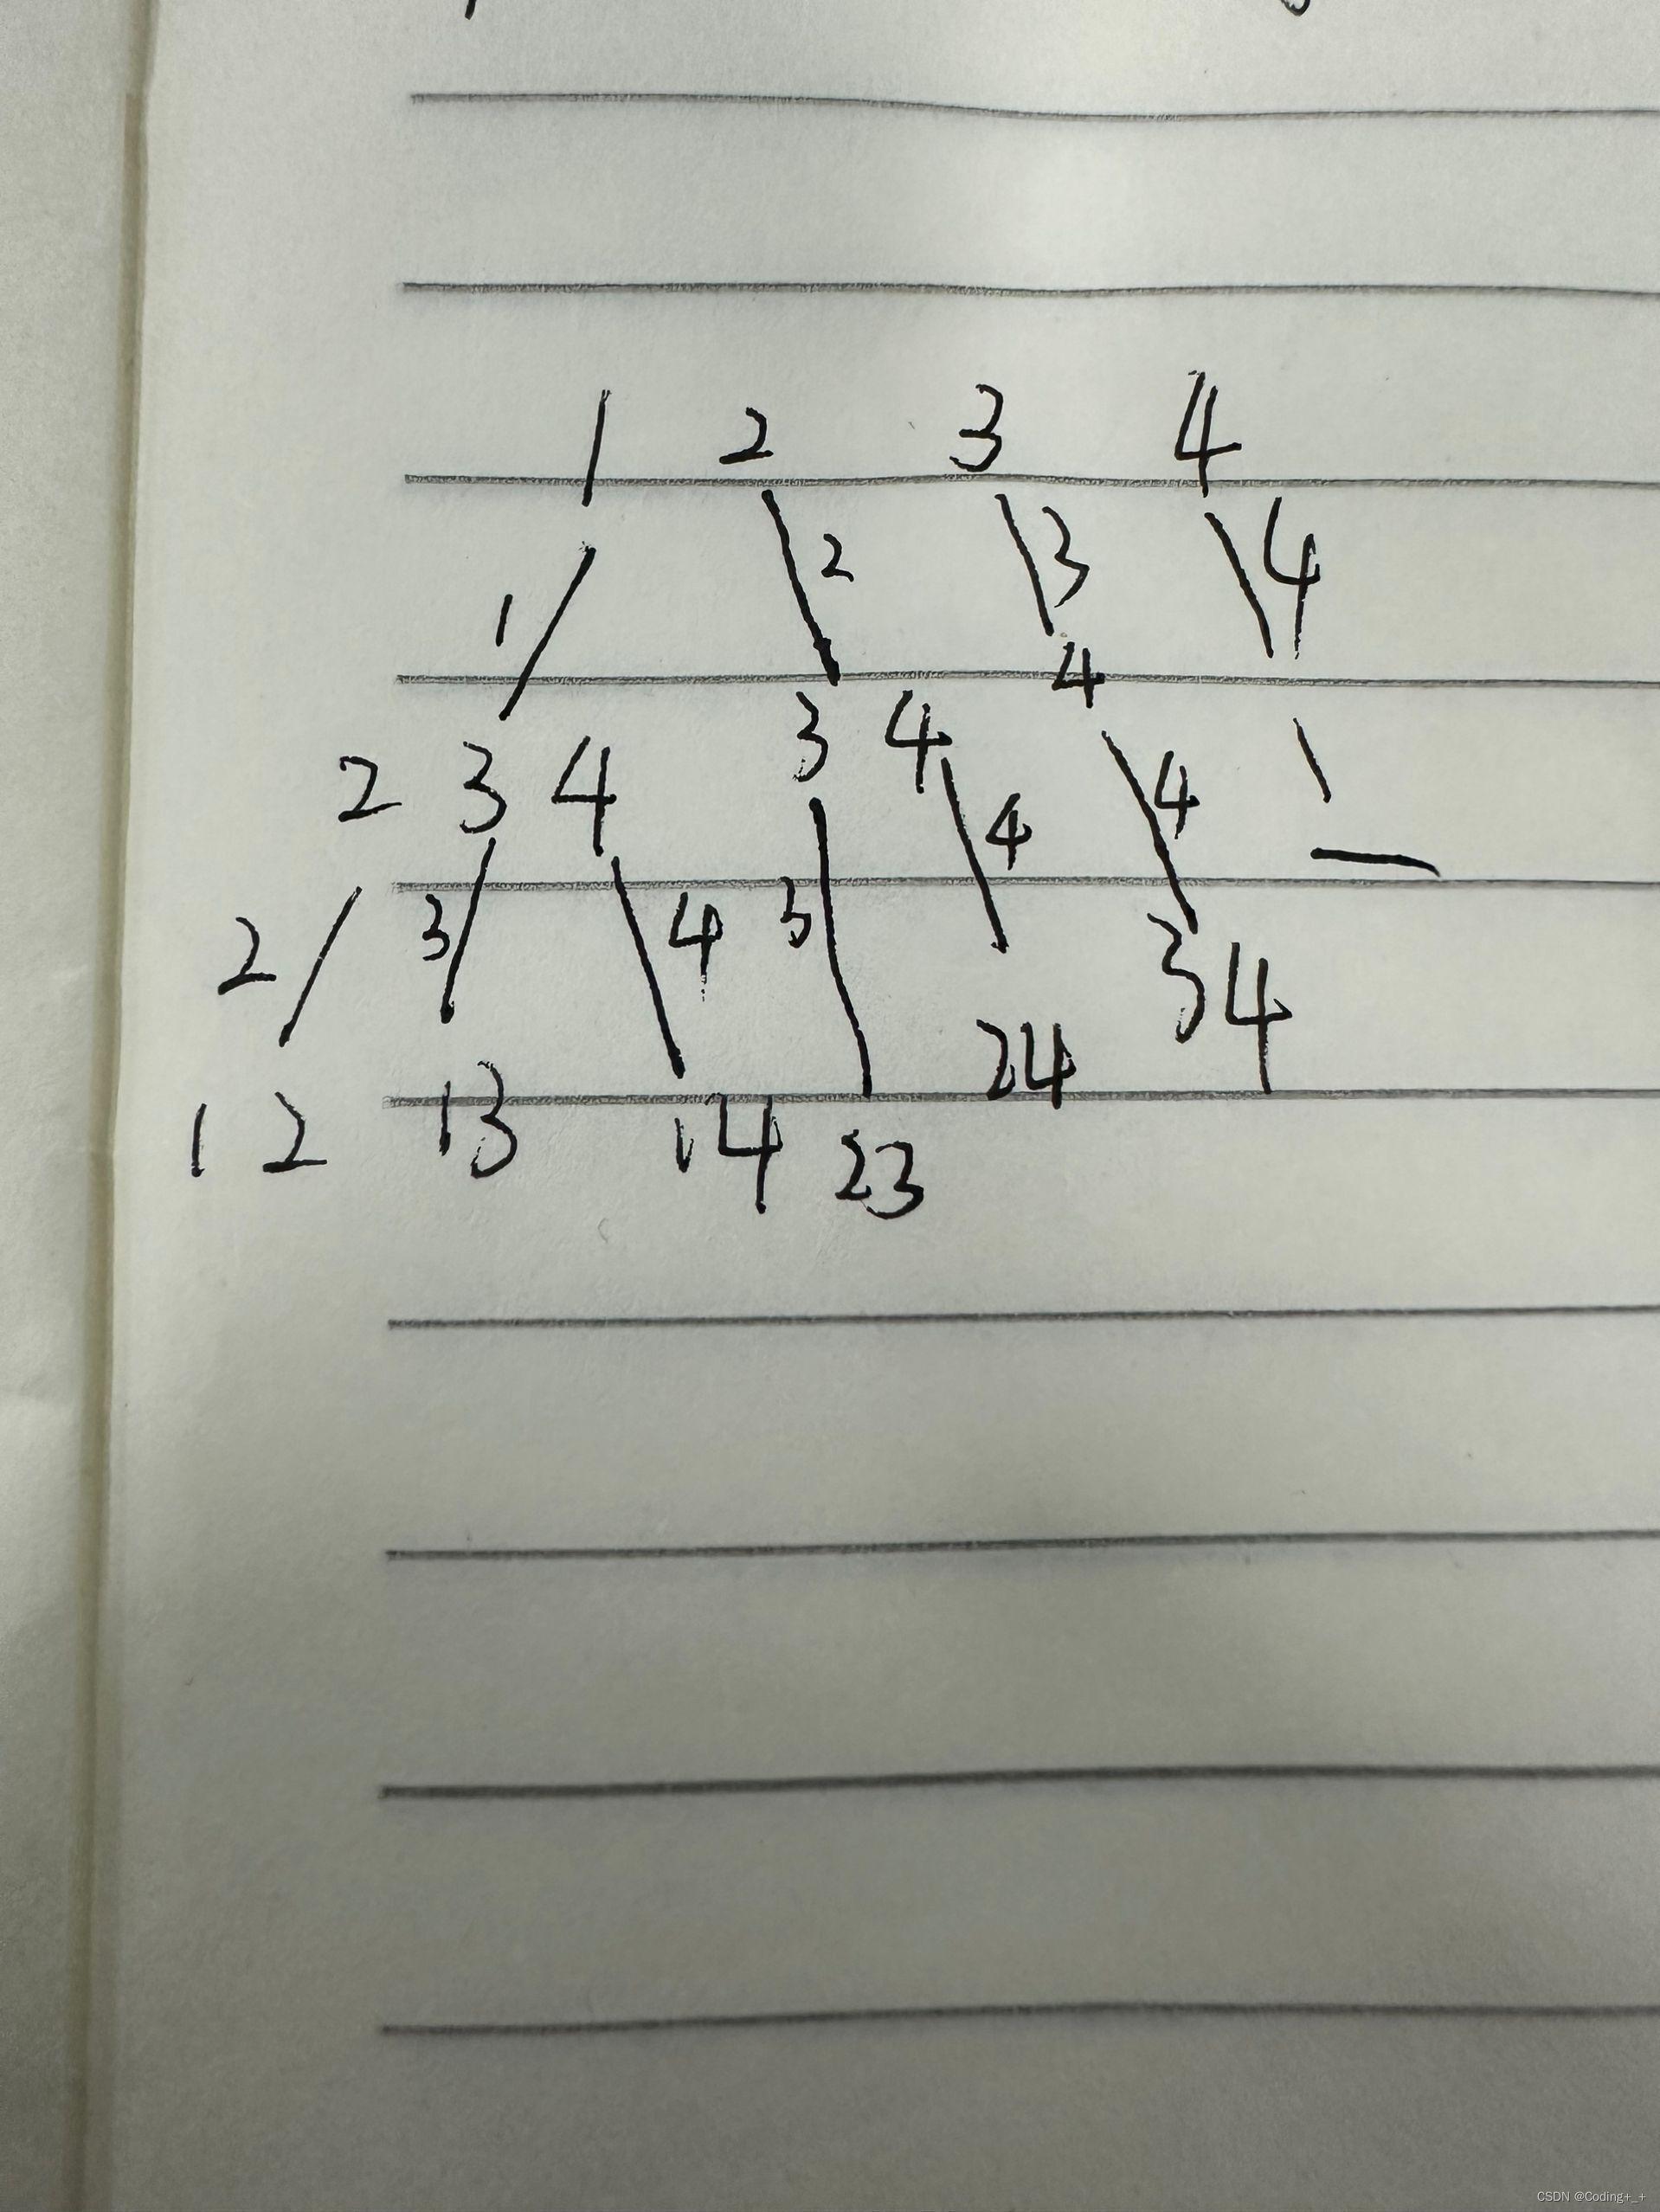 1 2 3 4
1 2 3 4
2 3 4 3 4 4
2 3 4 3 4 4
12 13 14 23 24 34
CSDN @Coding+_+